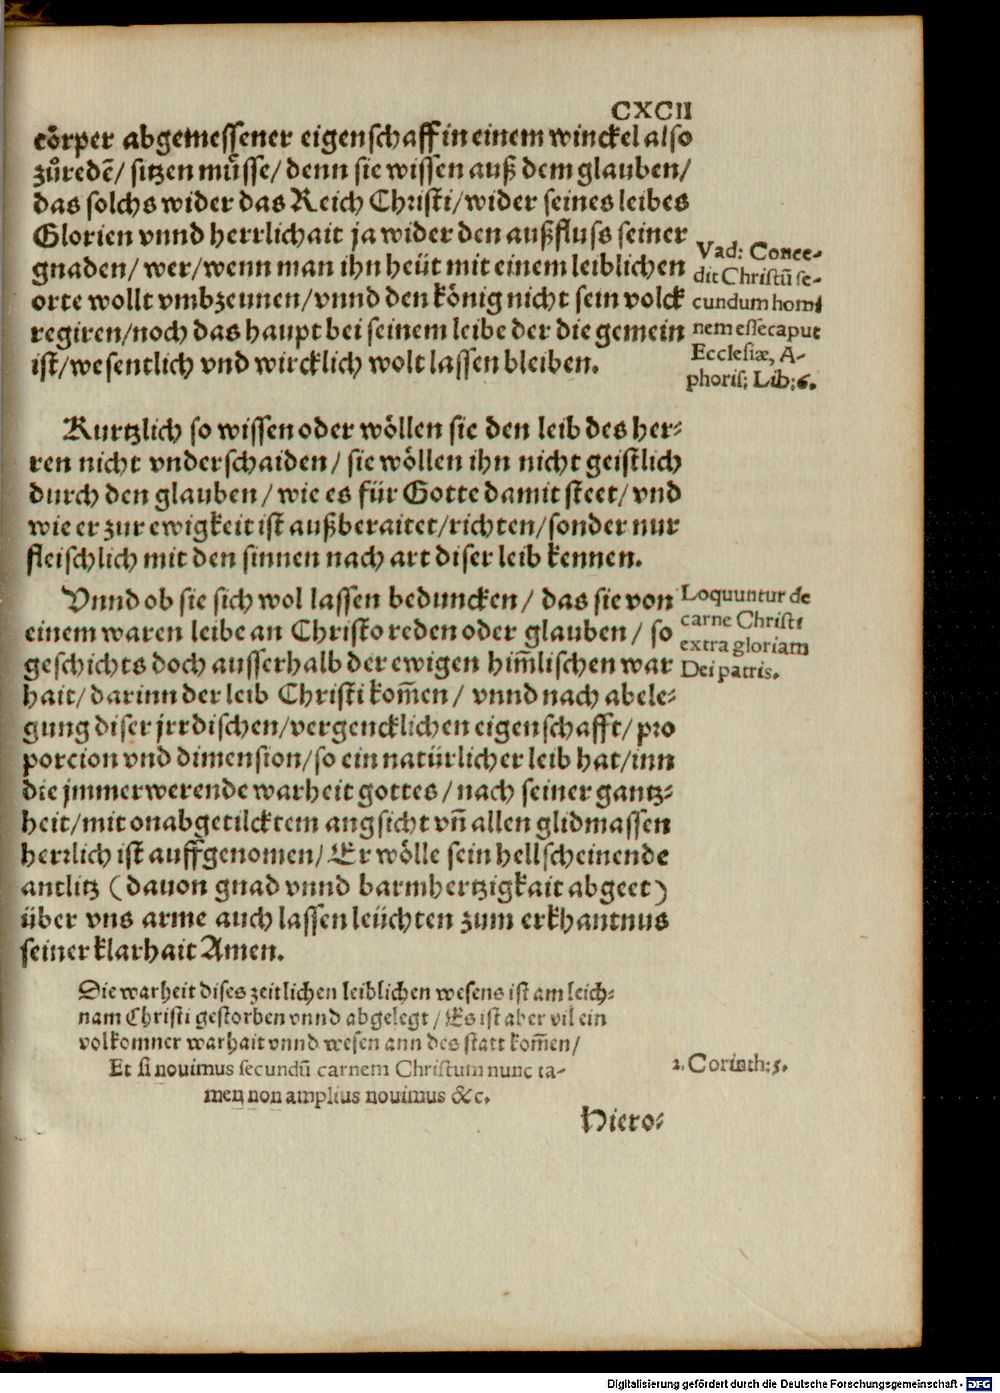 CXCII
cörper abgemessener eigenschaff in einem winckel also
zůredē/ sitzen můsse/ denn sie wissen auß dem glauben/
das solchs wider das Reich Christi/ wider seines leibes
Glorien vnnd herrlichait ja wider den außfluss seiner
gnaden/ wer/ wenn man ihn heüt mit einem leiblichen
orte wollt vmbzeunen/ vnnd den König nicht sein volck
regiren/ noch das haupt bei seinem leibe der die gemein
ist/ wesentlich vnd wircklich wolt lassen bleiben.
Vad: Conce-
dit Christū se-
cundum homi
nem esse caput
Ecclesiæ, A-
phoris; Lib:6.
Kurtzlich so wissen oder wöllen sie den leib des her-
ren nicht vnderschaiden/ sie wöllen ihn nicht geistlich
durch den glauben/ wie es für Gotte damit steet/ vnd
wie er zur ewigkeit ist außberaitet/ richten/ sonder nur
fleischlich mit den sinnen nach art diser leib kennen.
Vnnd ob sie sich wol lassen beduncken/ das sie von
einem waren leibe an Christo reden oder glauben/ so
geschichts doch ausserhalb der ewigen him̄lischen war
hait/ darinn der leib Christi kom̄en/ vnnd nach abele-
gung diser jrrdischen/ vergencklichen eigenschafft/ pro
porcion vnd dimension/ so ein natürlicher leib hat/ inn
die jmmerwerende warheit gottes/ nach seiner gantz-
heit/ mit onabgetilcktem angsicht vn̄ allen glidmassen
herrlich ist auffgenomen/ Er wölle sein hellscheinende
antlitz (dauon gnad vnnd barmhertzigkait abgeet)
über vns arme auch lassen leüchten zum erkhantnus
seiner klarhait Amen.
Loquuntur de
carne Christi
extra gloriam
Dei patris.
Die warheit dises zeitlichen leiblichen wesens ist am leich-
nam Christi gestorben vnnd abgelegt/ Es ist aber vil ein
volkomner warhait vnnd wesen ann des statt kom̄en/
Et si novimus secundū carnem Christum nunc ta-
men non amplius novimus &c.
2. Corinth:5.
Hiero-
Digitalisierung gefördert durch die Deutsche Forschungsgemeinschaft - DFG